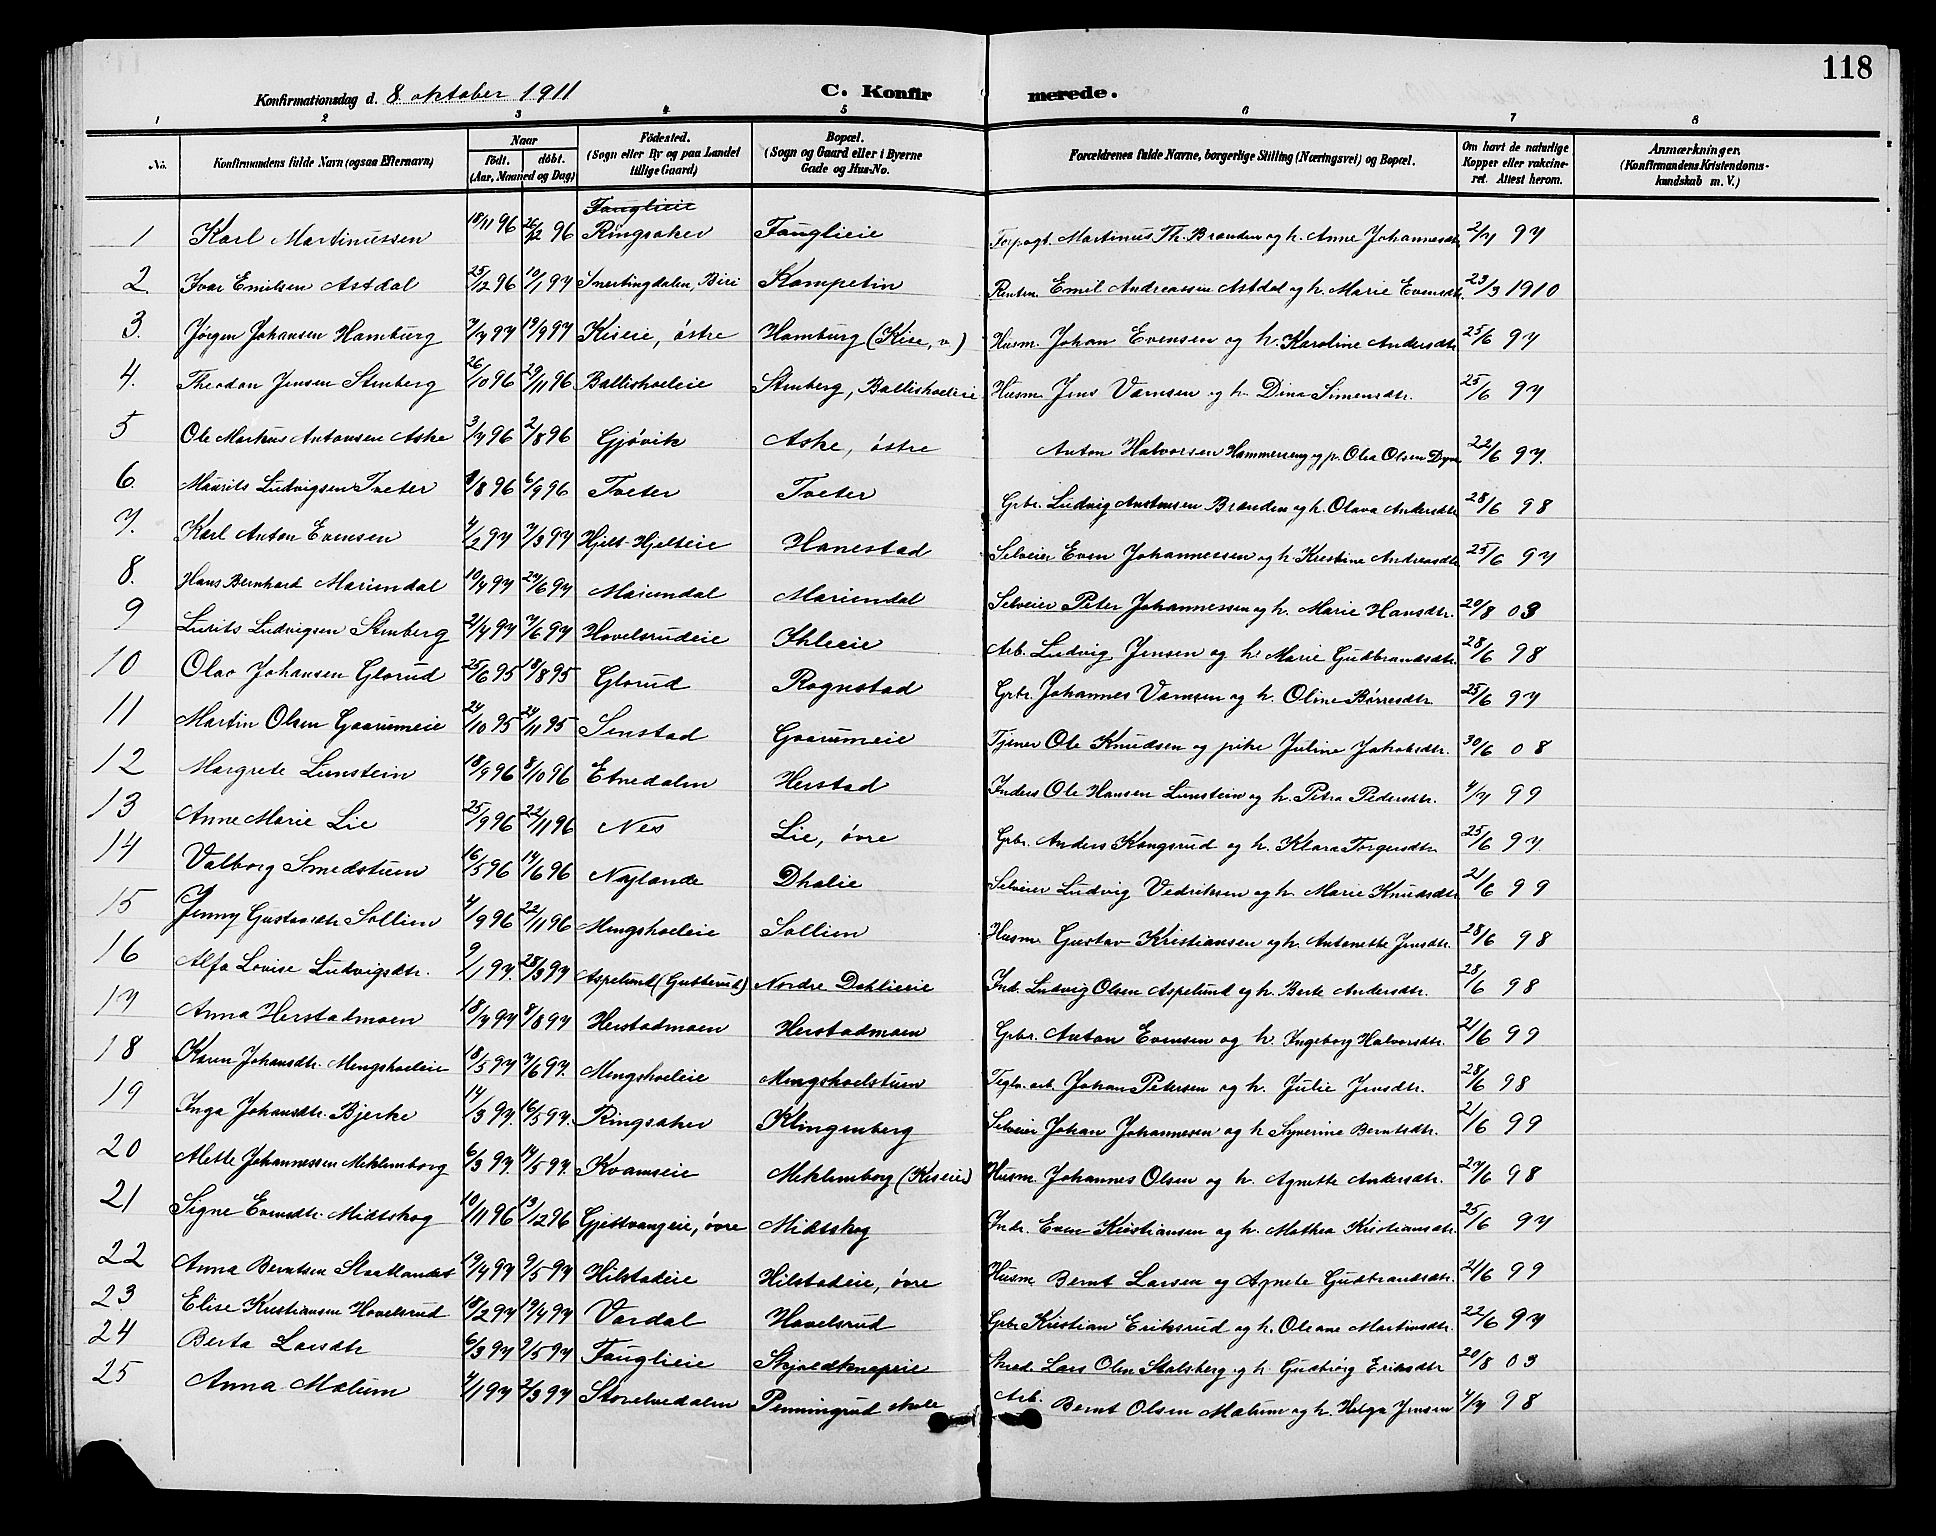 118
Konfirmationsdag d. 8 oktober 1911 C. Konfirmerede.
1 2 3 4 5 6 7 8
No. Konfirmandens fulde Navn (ogsaa Efternavn) Naar født. døbt. (Aar, Maaned og Dag) Födested. (Sogn eller By og paa Landet tillige Gaard) Bopæl. (Sogn og Gaard eller i Byerne Gade og Hus-No. Forældrenes fulde Navne, borgerlige Stilling (Næringsvei) og Bopæl. Om havt de naturlige Kopper eller vakcineret. Attest herom. Anmærkninger. (Konfirmandens Kristendomskundskab m. V.)
Fauglieie
1 Karl Martinussen 18/11 96 26/12 96 Ringsaker Fauglieie Forpagt. Martinus Th. Brænden og h. Anne Johannesdtr. 2/7 97
2. Ivar Emilsen Astdal 25/12 96 10/1 97 Snertingdalen, Biri Kampetin Rentm. Emil Andreassen Astdal og h. Marie Evensdtr. 23/3 1910
3. Jørgen Johansen Hamburg 7/7 97 19/9 97 Kiseie, østre Hamburg (Kise, v.) Husm. Johan Evensen og h. Karoline Andersdtr 25/6 97
4. Theodan Jensen Stenberg 26/10 96 29/11 96 Ballishoeleie Stenberg, Ballishoeleie Husm. JensVærnsen og h. Dina Simensdtr. 25/6 97
5 Ole Markus Antonsen Aske 3/7 96 2/8 96 Gjøvik Aske, østre Anton Halvorsen Hammereng og p. Olea Olsen 22/6 97.
6. Maurits Ludvigsen Tveter 8/8 96 6/9 96 Tveter Tveter Grbr. Ludvig Anstensen Brænden og h. Olava Andersdtr 28/6 98
7. Karl Anton Evensen 4/2 97 7/3 97 Hjelt Hjelteie Hanestad Selveier Even Johannessen og h. Kristine Andreasdtr 25/6 97
8. Hans Bernhard Mariendal 10/4 97 24/6 97 Mariendal Mariendal Selveier Peter Johannessen og h. Marie Hansdtr. 20/8 03
9 Lurits Ludvigsen Stenberg 2/4 97 7/6 97 Hovelsrudeie Ihleeie Arb. Ludvig Jensen og h. Marie Gudbrandsdtr. 28/6 98
10 Olav Johansen Glorud 25/6 95 18/8 95 Glorud Rognstad Grbr. Johannes Værnsen og h. Oline Børresdtr 25/6 97
11 Martin Olsen Gaarumeie 24/10 95 24/11 95 Senstad Gaarumeie Tjener Ole Knudsen og pike Juline Jakobsdtr. 30/6 08
12 Margrete Lunstein 18/9 96 8/10 96 Etnedalen Herstad Inders. Ole Hansen Lunstein og h. Petra Pedersdtr. 4/7 99
13 Anne Marie Lie 25/9 96 22/11 96 Nes Lie, øvre Grbr. Anders Kongsrud og h. Klara Torgersdtr 25/6 97
14 Valborg Smedstuen 16/5 96 14/6 96 Nylande Dhalie Selveier Ludvig Vedriksen og h. Marie Knudsdtr. 21/6 99
15 Jenny Gustavsdtr Sollien 4/9 96 22/11 96 Mengshoeleie Sollien Husm. Gustav Kristiansen og h. Antonette Jensdtr. 28/6 98
16 Alfa Lovise Ludvigsdtr. 9/1 97. 28/3 97 Aspelund (Gutterud) Nordre Dehlieeie Ind. Ludvig Olsen Aspelund og h. Berte Andersdtr. 28/6 98
17 Anna Herstadmoen 18/7 97 8/8 97 Herstadmoen Herstadmoen Grbr. Anton Evensen og h. Ingeborg Halvorsdtr. 21/6 99
18 Karen Johansdtr. Mengshoeleie 18/5 97 7/6 97. Mengshoeleie Mengshoelstuen Teglv. arb. Johan Petersen og h. Julie Jensdtr. 28/6 98
19 Inga Johansdtr. Bjerke 14/3 97. 16/5 97. Ringsaker Klingenberg Selveier Johan Johannesen og h Synerine Berntsdtr. 21/6 99
20 Alette Johannessen Meklemborg 6/3 97. 14/5 97. Kvamseie Meklemborg (Kiseeie) Husm. Johannes Olsen og h. Agnette Andersdtr. 27/6 98
21 Signe Evensdtr. Midtskog 10/11 96 13/12 96 Gjestvangeie, øvre Midtskog Indr. Even Kristiansen og h. Mathea Kristiansdtr. 25/6 97
22 Anna Berntsen 19/4 97 9/5 97 Hilstadeie Hilstadeie, øvre Husm. Bernt Larsen og Agnete Gudbrandsdtr. 21/6 99
23 Elise Kristiansen Hovelsrud 18/2 97 19/4 97 Vardal Hovelsrud Grbr Kristian Eriksrud og h. Oleane Martinsdtr. 22/6 97
24 Berta Larsdtr 6/3 97 9/5 97 Fauglieie Skjoldknapeie Skred. Lars Olsen Stalsberg og h. Gudbjørg Eriksdtr 20/8 03
25 Anna Mælum 4/1 97 2/3 97 Storelvedalen Penningrud skole Arb. Bernt Olsen Mælum og h. Helga Jensen 4/7 98